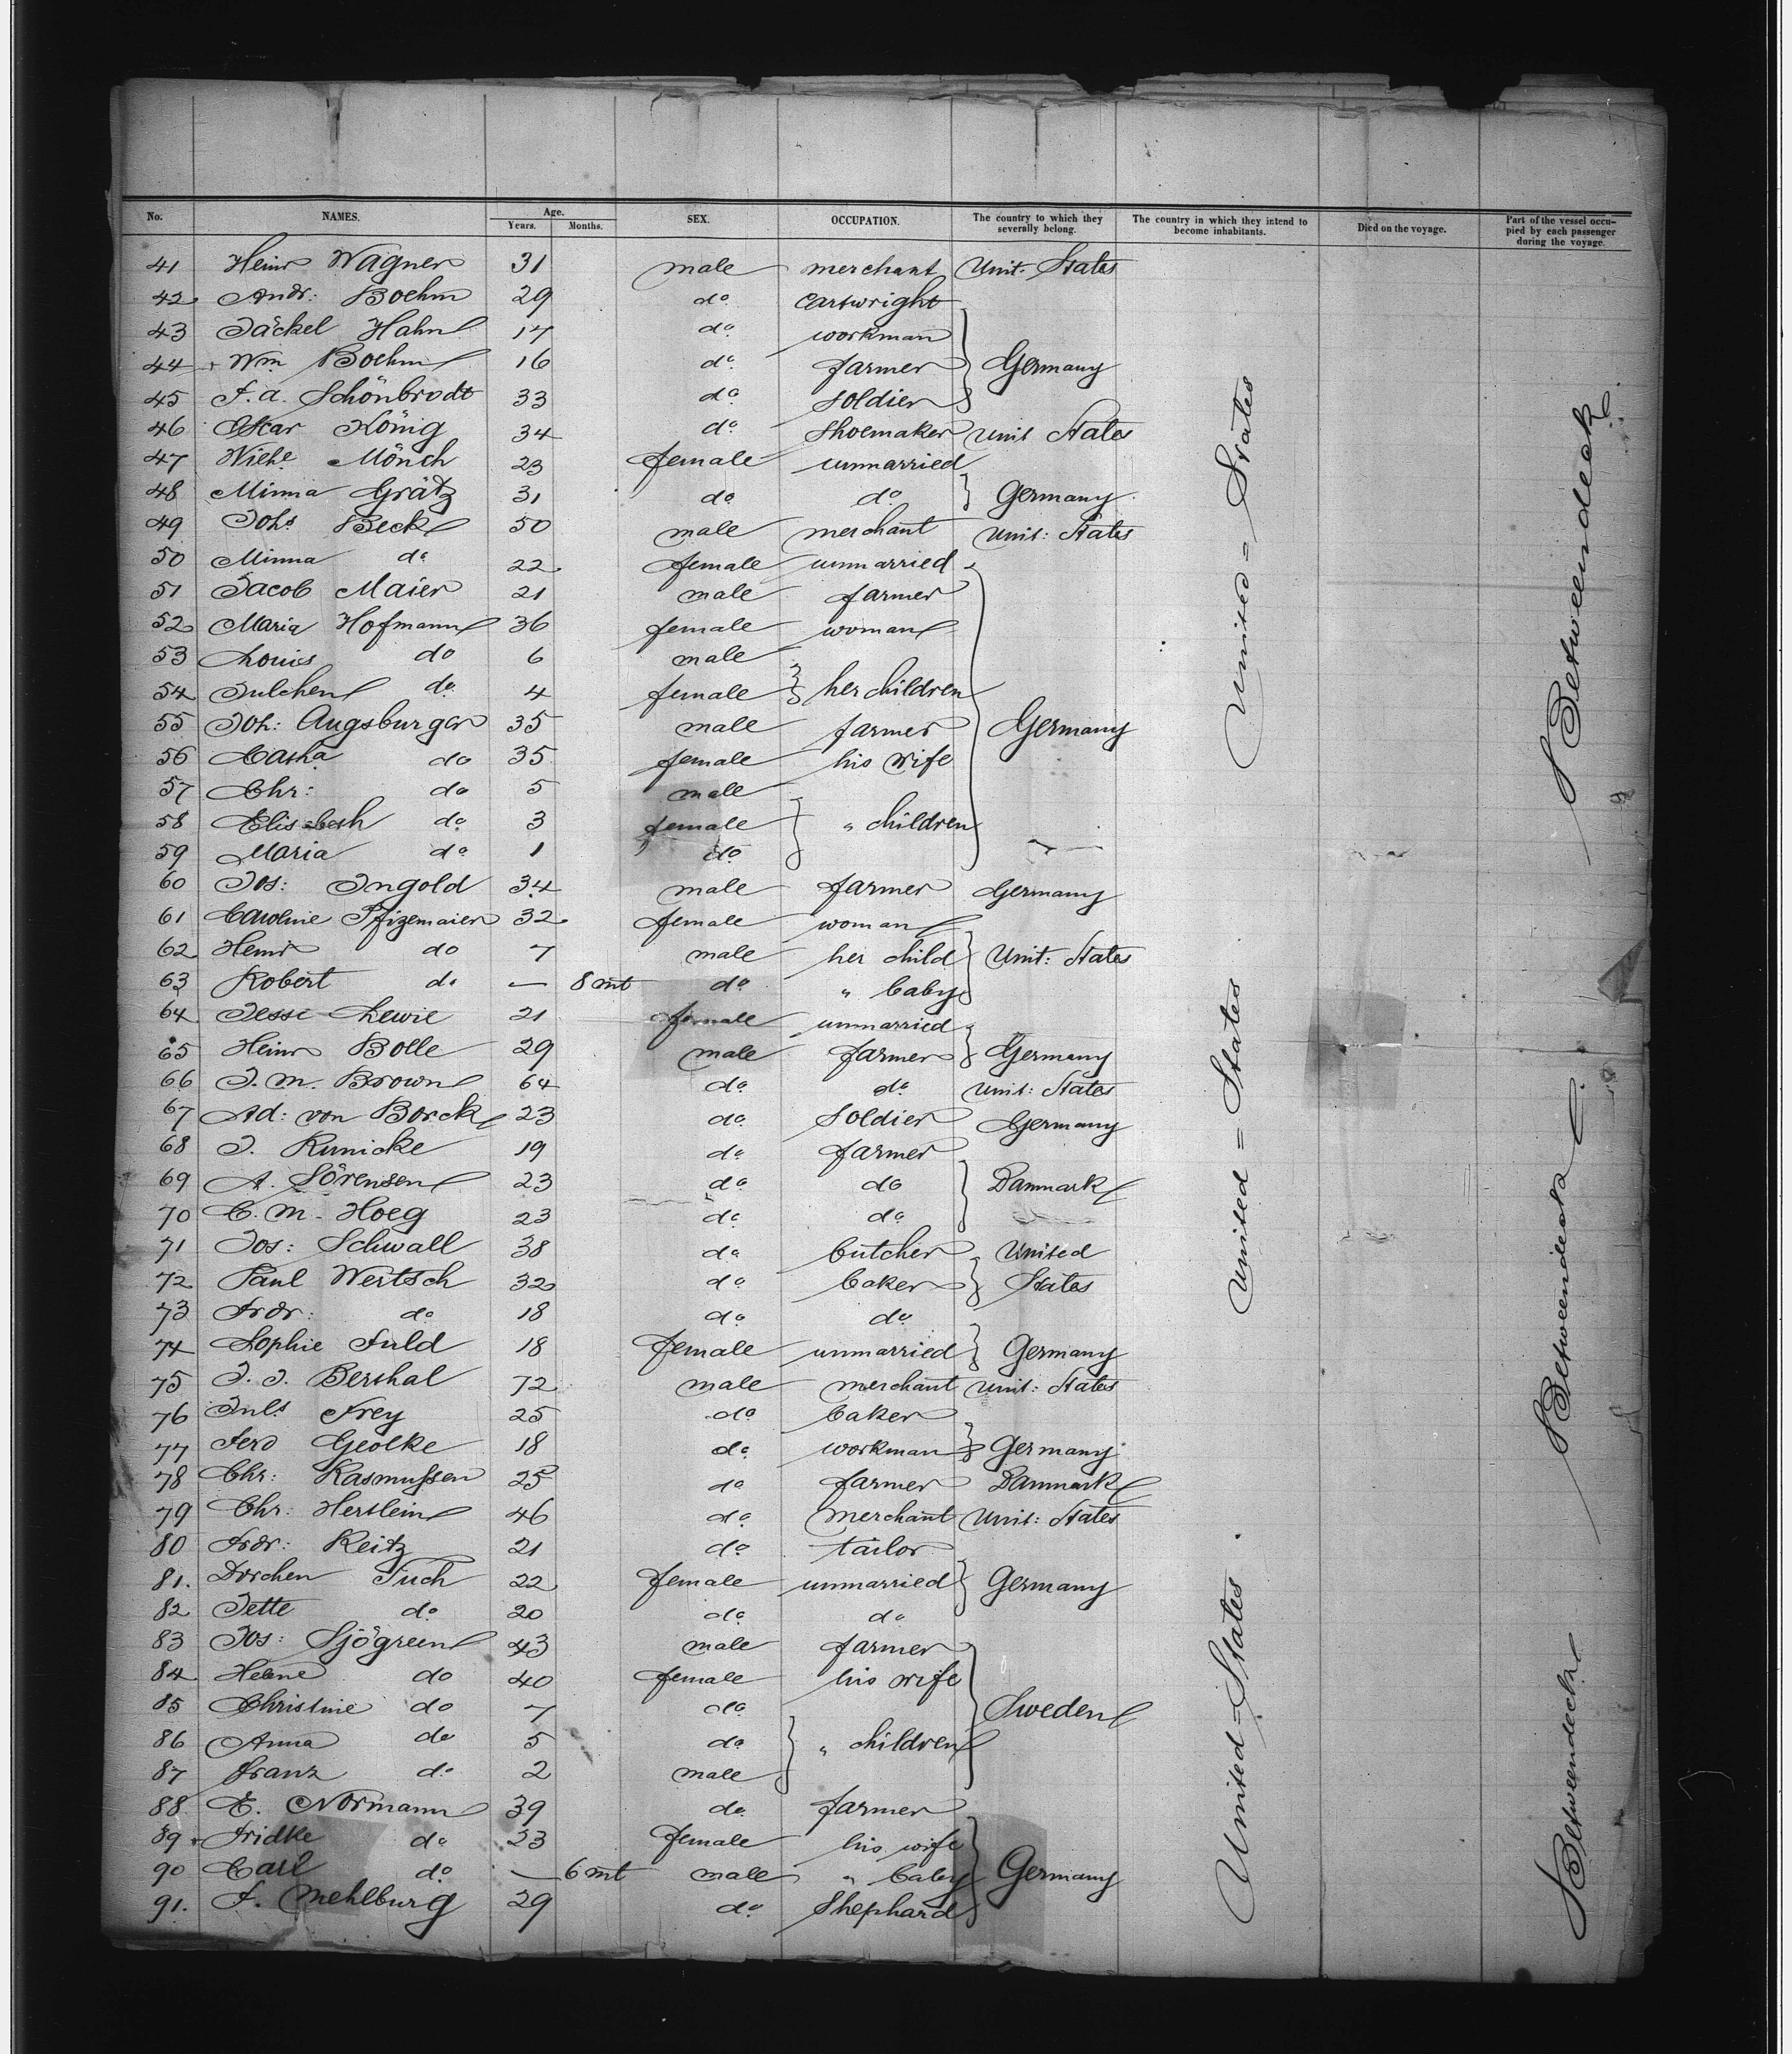 No. NAMES. Age. Years. Months. SEX. OCCUPATION. The country to which they severally belong. The country in which they intend to become inhabitants. Died on the voyage. Part of the vessel occupied by each passenger during the voyage.
41 Heinr Wagner 31 male merchant Unit. States
42 Andr: Boehm 29 do cartwright
43 Jäckel Hahn 17 do workman
44 Wm Boehm 16 do farmer Germany
45 F. A. Schönbrodt 33 do soldier
46 Oscar König 34 do shoemaker Unit States
47 Wilhe Mönch 23 female unmarried
48 Minna Grätz 31 do do Germany
49 Johs Beck 50 male merchant Unit: States
50 Minna do 22 female unmarried
51 Jacob Maier 21 male farmer
52 Maria Hofmann 36 female woman
53 Louis do 6 male
54 Julchen do 4 female her children
55 Joh: Augsburger 35 male farmer Germany
56 Catha do 35 female his wife
57 Chr: do 5 male
58 Elisabeth do 3 female " children
59 Maria do 1 do
60 Jos: Ingold 34 male farmer Germany
61 Caroline Pfizemaier 32 female woman
62 Heinr do 7 male her child Unit: States
63 Robert do — 8 mt do " baby
64 Jesse Lewie 21 female unmarried
65 Heinr Bolle 29 male farmer Germany
66 J. M. Brown 64 do do Unit: States
67 Ad: von Borck 23 do soldier Germany
68 J. Kunicke 19 do farmer
69 A. Sörensen 23 do do Danmark
70 C. M. Hoeg 23 do do
71 Jos: Schwall 38 do butcher United
72 Paul Wertsch 32 do baker States
73 Frdr: do 18 do do
74 Sophie Fuld 18 female unmarried Germany
75 J. J. Berthal 72 male merchant Unit: States
76 Juls Frey 25 do baker
77 Ferd Geolke 18 do workman Germany
78 Chr: Rasmussen 25 do farmer Danmark
79 Chr: Hertlein 46 do merchant Unit: States
80 Frdr: Reitz 21 do tailor
81. Dorchen Tuch 22 female unmarried Germany
82 Jette do 20 do do
83 Jos: Sjögreen 43 male farmer
84 Helene do 40 female his wife
85 Christine do 7 do Sweden
86 Anna do 5 do " children
87 Franz do 2 male
88 E. Normann 39 do farmer
89 Fridke do 23 female his wife
90 Carl do — 6 mt male " baby Germany
91. F. Mehlburg 29 do Shephard
United = States
United = States
United = States
Betweendeck
Betweendeck
Betweendeck